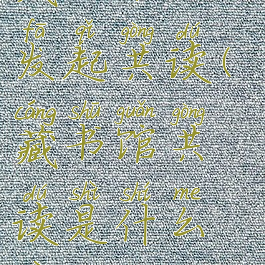 fā qǐ gòng dú
发起共读(
cáng shū guǎn gòng
藏书馆共
dú shì shí me
读是什么